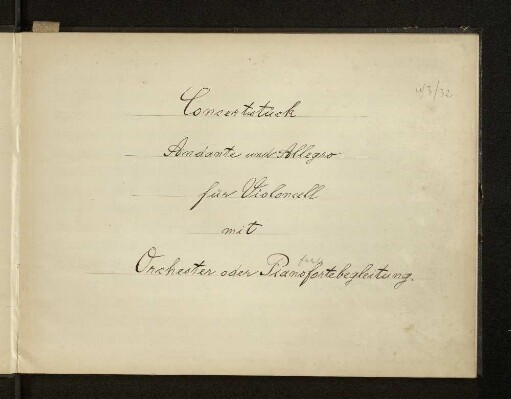 Concertstück
Andante und Allegro
für Violoncell
mit
Orchester oder Pianofortebegleitung.